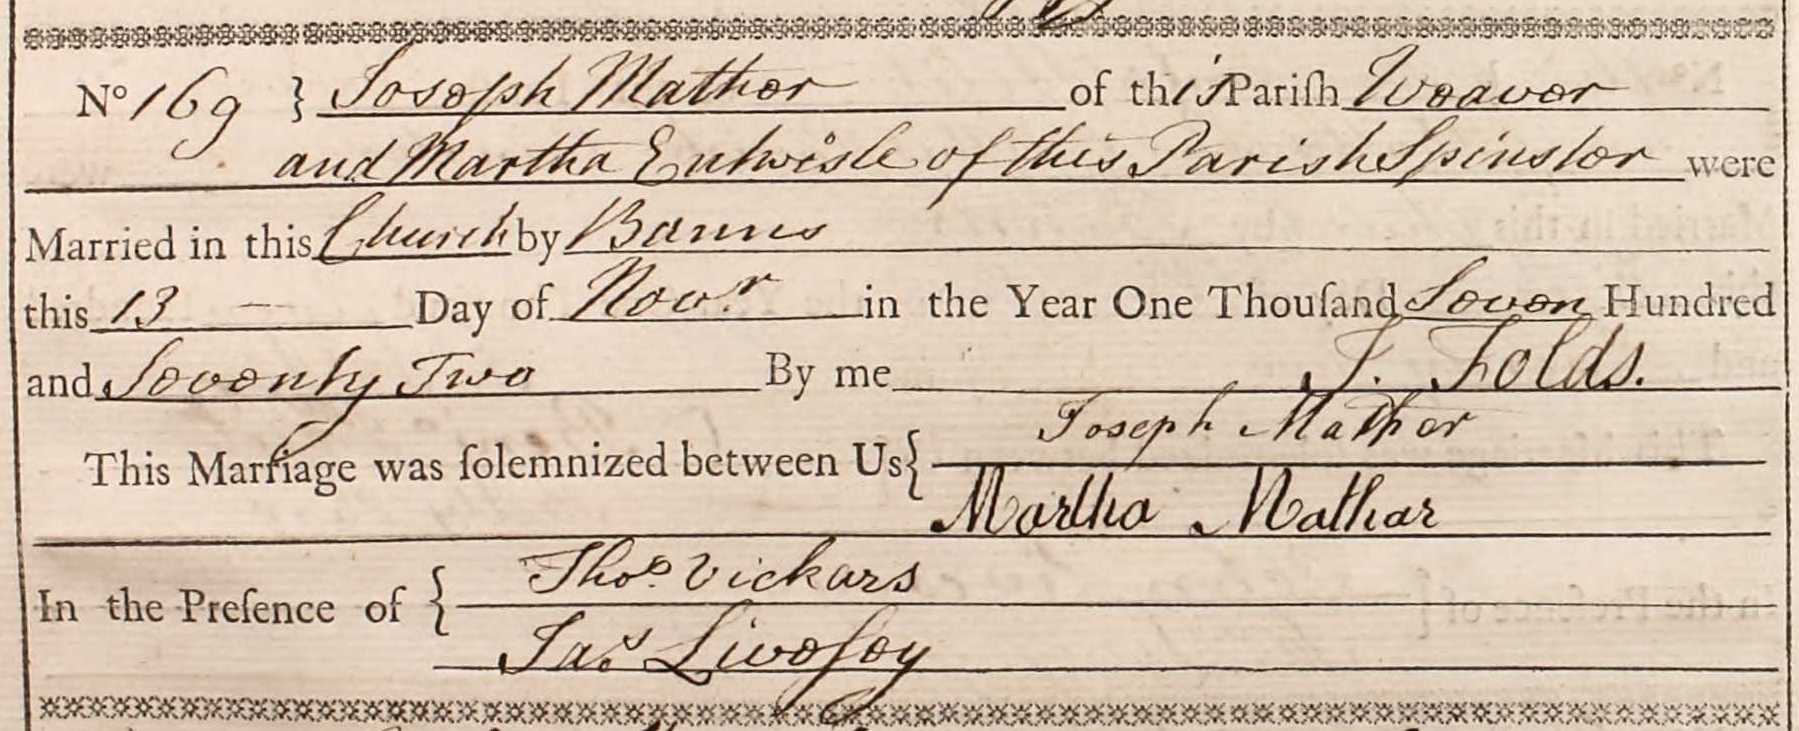 No 169 } Joseph Mather of this Pariſh Weaver
and Martha Entwisle of this Parish Spinster were
Married in this Church by Banns
this 13 — Day of Novr. in the Year One Thouſand Seven Hundred
and Seventy Two By me J. Folds.
This Marriage was ſolemnized between Us { Joseph Mather
Martha Mathar
In the Preſence of { Thos. Vickars
Jas. Livesey